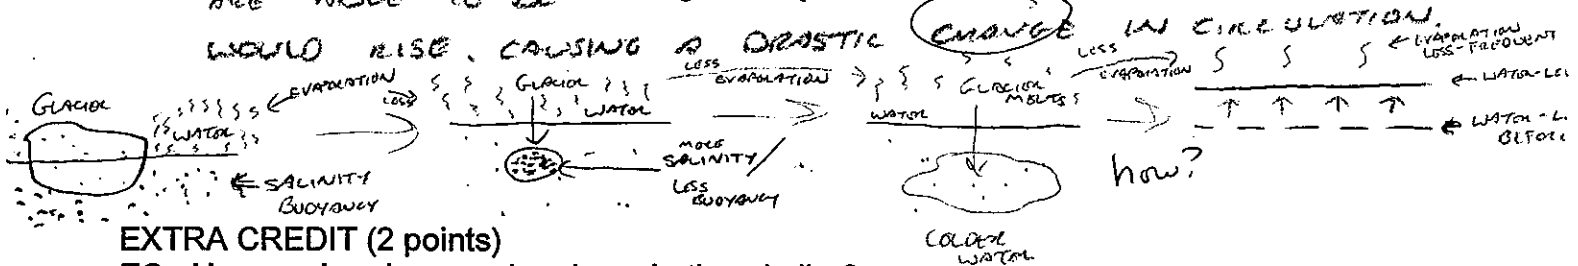 WOULD RISE. CAUSING A DRASTIC CHANGE IN CIRCULATION.
GLACIER
WATER
EVAPORATION
SALINITY
BUOYANCY
LESS
GLACIER
WATER
MORE
SALINITY
LESS
BUOYANCY
LESS
EVAPORATION
GLACIER
MELTS
WATER
COLDER
WATER
LESS
EVAPORATION
EVAPORATION
LESS-FREQUENT
WATER-
WATER-
how?
EXTRA CREDIT (2 points)